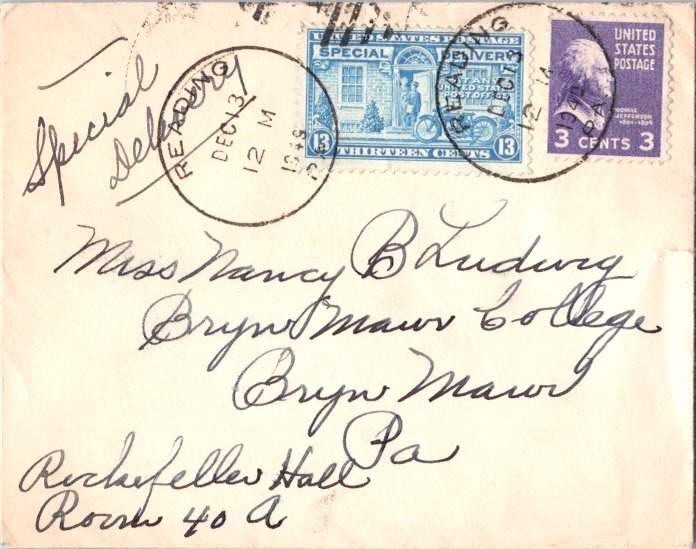 Special
Delivery
READING
DEC 13
12 M
1948
PA.
UNITED STATES POSTAGE
SPECIAL DELIVERY
AT ANY
UNITED STATES
POST OFFICE
13 THIRTEEN CENTS 13
READING
DEC 13
12 M
1948
PA.
UNITED
STATES
POSTAGE
THOMAS
JEFFERSON
1801-1809
3 CENTS 3
Miss Nancy B Ludwig
Bryn Mawr College
Bryn Mawr
Pa
Rockefeller Hall
Room 40 A